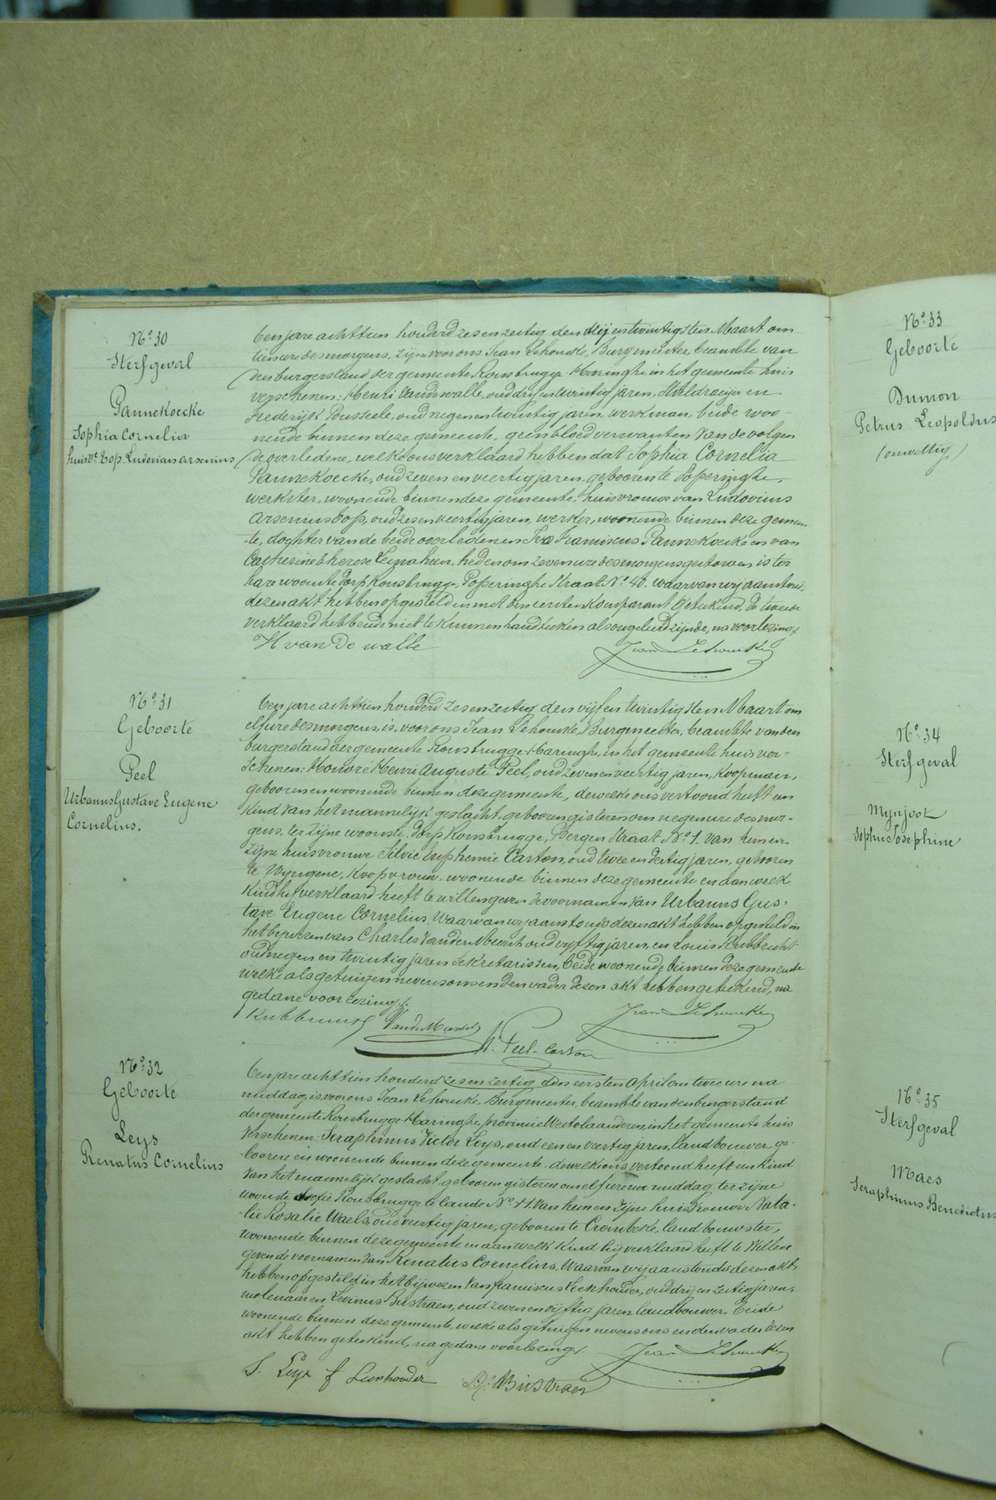 N.º 30
Sterfgeval
Pannekoecke
Sophia Cornelia
huisv.e Top Ludovicus Arsenius
Een jare achttien honderd zes en zestig den vijf en twintigsten Maart om
tien ure des morgens, zijn voor ons Jean Lehoucke, Burgmeester beambte van
den burgerstand der gemeente Rousbrugge Haringhe, in het gemeente huis
verschenen: Henri Vandewalle, oud drij en twintig jaren, en
Frederijk oud negen en twintig jaren, werkman, beide woo-
nende binnen deze gemeente, geen bloedverwanten van de volgen
de overledene, welke ons verklaard hebben dat Sophia Cornelia
Pannekoecke, oud zeven en veertig jaren, geboren te Poperinghe,
werkster, woonende binnen deze gemeente, huisvrouw van Ludovicus
Arsenius Top, oud zes en veertig jaren, werker, woonende binnen deze gemeen-
te, dochter van de beide overledenen Franciscus Pannekoecke en van
Catherine Therese heden om zeven ure des morgens gestorven is ter
harer woonste dorp Rousbrugge, Poperinghe Straat N.º 40. waarvan wij aanstonds
dezen akt hebben opgesteld en met den eersten Komparant geteekend, de tweede
verklaard hebbende niet te kunnen handteeken als ongeleerd zijnde, na voorlezing.
H van De walle Jean Lehoucke
N.º 31
Geboorte
Peel
Urbanus Gustave Eugene
Cornelius.
Een jare achttien honderd zes en zestig den vijf en twintigsten Maart om
elf ure des morgens is voor ons Jean Lehoucke Burgmeester, beambte van den
burgerstand der gemeente Rousbrugge-Haringhe, in het gemeente huis ver-
schenen: Honoré Henri Auguste Peel, oud zeven en veertig jaren, Koopman,
geboren en woonende binnen deze gemeente, dewelke ons vertoond heeft een
Kind van het mannelijk geslacht, geboren gisteren om negen ure des mor-
gens, ter zijne woonste, dorp Rousbrugge, Bergen Straat N.º 1. van hem en
zijne huisvrouwe Silvie Euphemie Carton, oud twee en dertig jaren, geboren
te Wijngene, Koopvrouw, woonende binnen deze gemeente en aan welk
Kind hij verklaard heeft te willen geven de voornamen van Urbanus Gus-
tave Eugene Cornelius, waarvan wij aanstonds dezen akt hebben opgesteld in
het bijwezen van Charles Vander Meersch oud vijftig jaren, en Louis Rubbrecht
oud negen en twintig jaren Sekretarissen, beide woonende binnen deze gemeente
welke als getuigen nevens ons en den vader dezen akt hebben geteekend, na
gedane voorlezing.
Jean Lehoucke
H. Peel-Carton
N.º 32
Geboorte
Leys
Renatus Cornelius
Een jare achttien honderd zes en zestig den eersten April om twee ure na
middag is voor ons Jean Lehoucke Burgmeester, beambte van den burgerstand
der gemeente Rousbrugge Haringhe, provincie Westvlaanderen, in het gemeente huis
verschenen: Seraphinus Victor Leys, oud een en veertig jaren, Landbouwer, ge-
boren en woonende binnen deze gemeente, dewelke ons vertoond heeft een kind
van het mannelijk geslacht, geboren gisteren om elf ure voormiddag ter zijne
woonste Rousbrugge te lande N.º 41. van hem en zijne huisvrouwe Nata-
lie Rosalie Waels, oud veertig jaren, geboren te Crombeke, landbouwster,
woonende binnen deze gemeente en aan welk kind hij verklaard heeft te willen
geven de voornamen van Renatus Cornelius, waarvan wij aanstonds dezen akt
hebben opgesteld in het bijwezen van Franciscus oud drij en zestig jaren,
molenaar en Livinus Bustraen, oud zeven en vijftig jaren landbouwer. Beide
woonende binnen deze gemeente, welke als getuigen nevens ons en den vader dezen
akt hebben geteekend, na gedane voorlezing.
Jean Lehoucke
S. Leys f Leenhouder Bustraen
N.º 33
Geboorte
Dumon
Petrus Leopoldus
(onwettig)
N.º 34
Sterfgeval
Mynjoot
Sophie Josephine
N.º 35
Sterfgeval
Maes
Seraphinus Benedictus